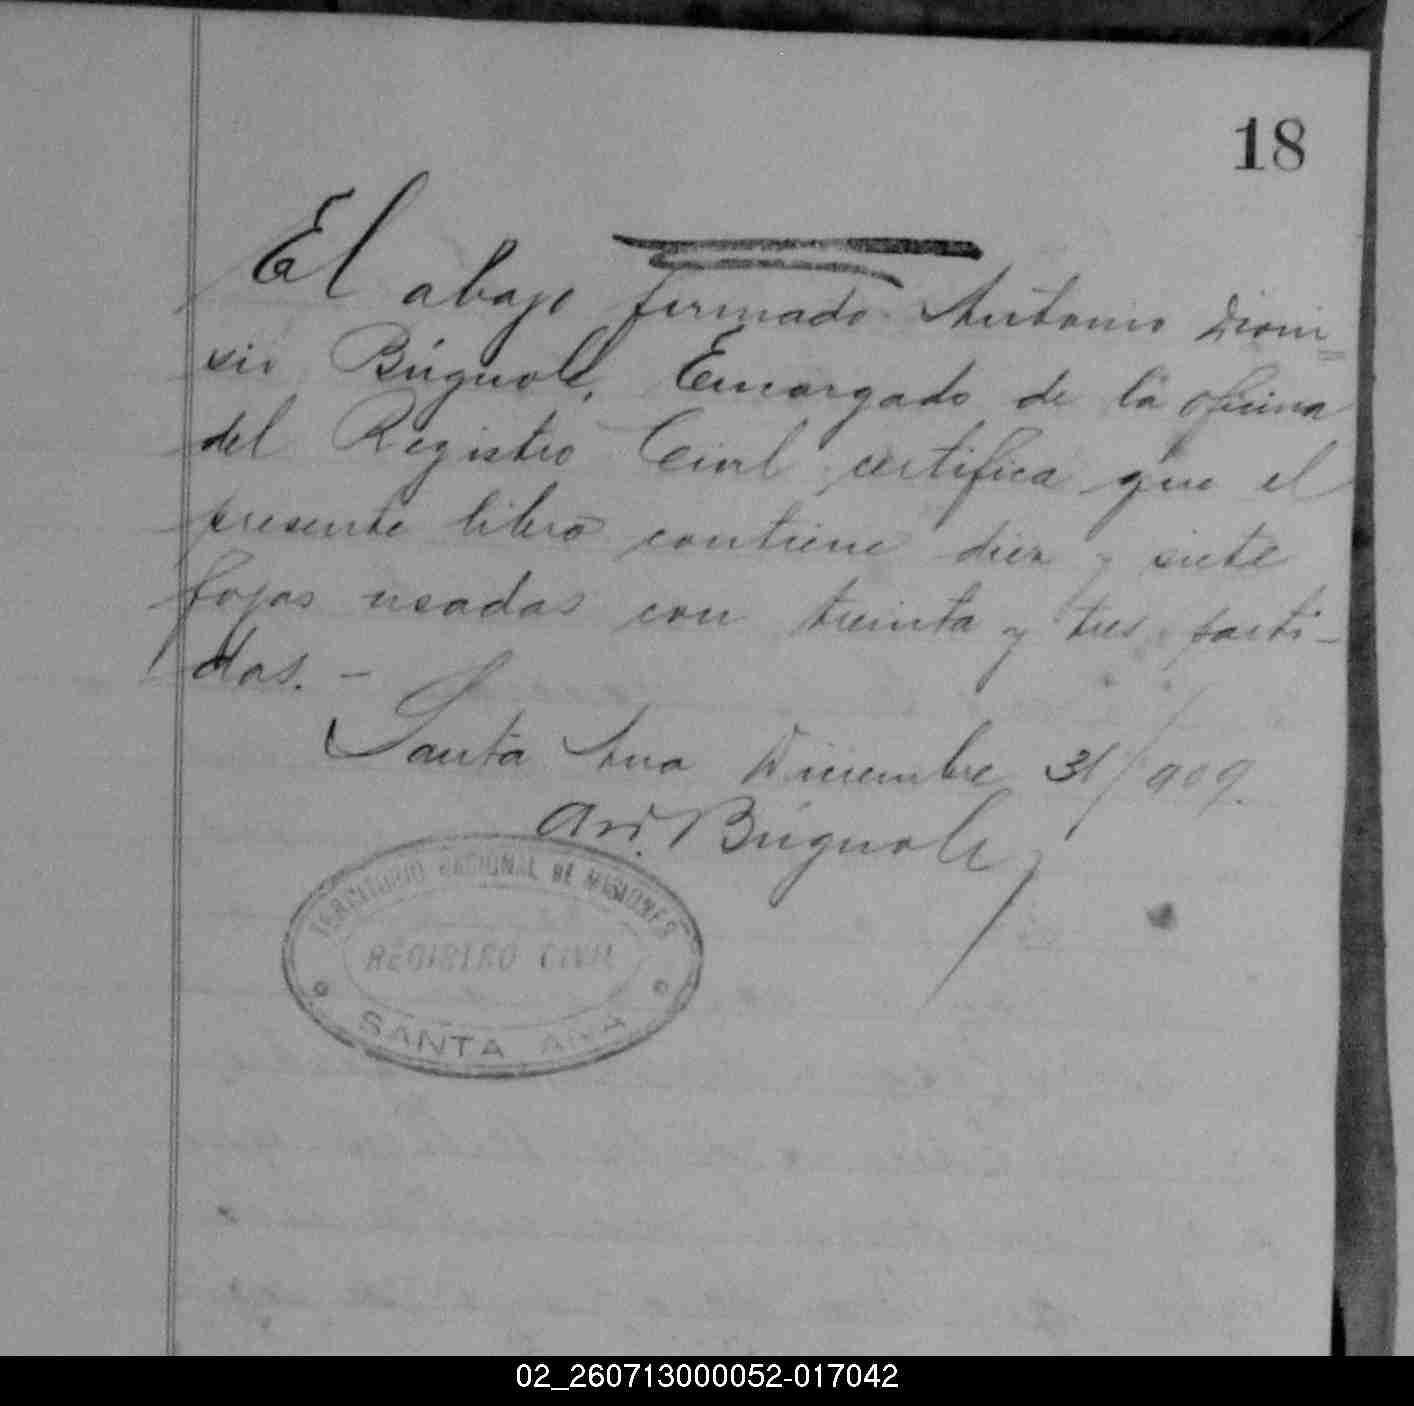 18
El abajo firmado Antonio Dioni=
sio Búgnole, Encargado de la oficina
del Registro Civil certifica que el
presente libro contiene diez y siete
fojas usadas con treinta y tres parti-
das. -
Santa Ana Diciembre 31/909.
Búgnole
TERRITORIO NACIONAL DE MISIONES
REGISTRO CIVIL
SANTA ANA
02_260713000052-017042